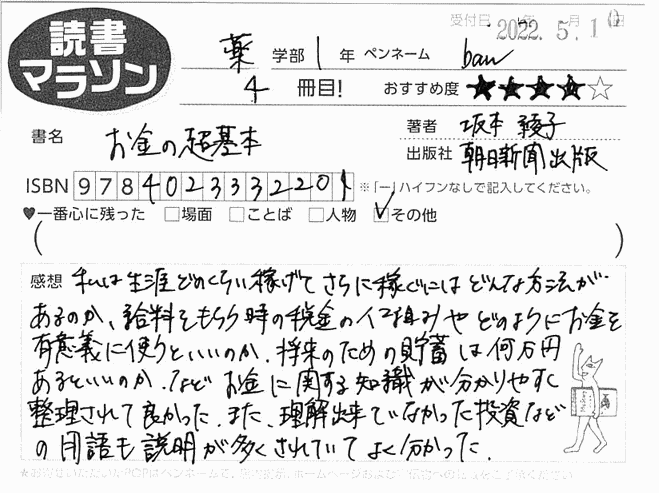 読書
マラソン
受付日 2022年5月10日
薬 学部 1 年 ペンネーム ban
4 冊目! おすすめ度 ★★★★☆
書名 お金の超基本
著者 坂本 綾子
出版社 朝日新聞出版
ISBN 9784023332201 ※「ー」ハイフンなしで記入してください。
♥一番心に残った □場面 □ことば □人物 ☑その他
( )
感想 私は生涯どのくらい稼げてさらに稼ぐにはどんな方法が
あるのか、給料をもらう時の税金の仕組みやどのようにお金を
有意義に使うといいのか、将来のための貯蓄は何万円
あるといいのか、などお金に関する知識が分かりやすく
整理されて良かった。また、理解出来ていなかった投資など
の用語も説明が多くされていてよく分かった。